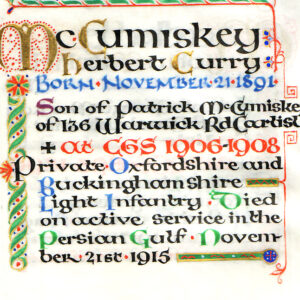 McCumiskey:
Herbert Curry
Born · November · 21 · 1891
Son of Patrick McCumiske
of 136 Warwick Rd Carlisl
+ at CGS 1906-1908
Private · Oxfordshire and
Buckinghamshire
Light Infantry · Died
on active service in the
Persian Gulf · Novem-
ber 21st 1915